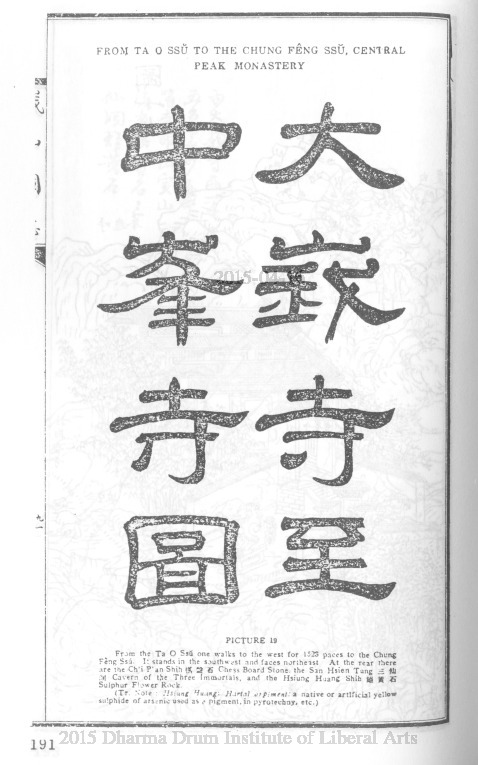 FROM TA O SSŬ TO THE CHUNG FÊNG SSŬ, CENTRAL
PEAK MONASTERY
大峩寺至
中峯寺圖
2015-04-
PICTURE 19
From the Ta O Ssŭ one walks to the west for 1525 paces to the Chung
Fêng Ssŭ. It stands in the southwest and faces northeast. At the rear there
are the Ch'i P'an Shih 棋盤石 Chess Board Stone, the San Hsien Tung 三仙
洞 Cavern of the Three Immortals, and the Hsiung Huang Shih 雄黃石
Sulphur Flower Rock.
(Tr. Note: Hsiung Huang: Hartal orpiment: a native or artificial yellow
sulphide of arsenic used as a pigment, in pyrotechny, etc.)
191
2015 Dharma Drum Institute of Liberal Arts